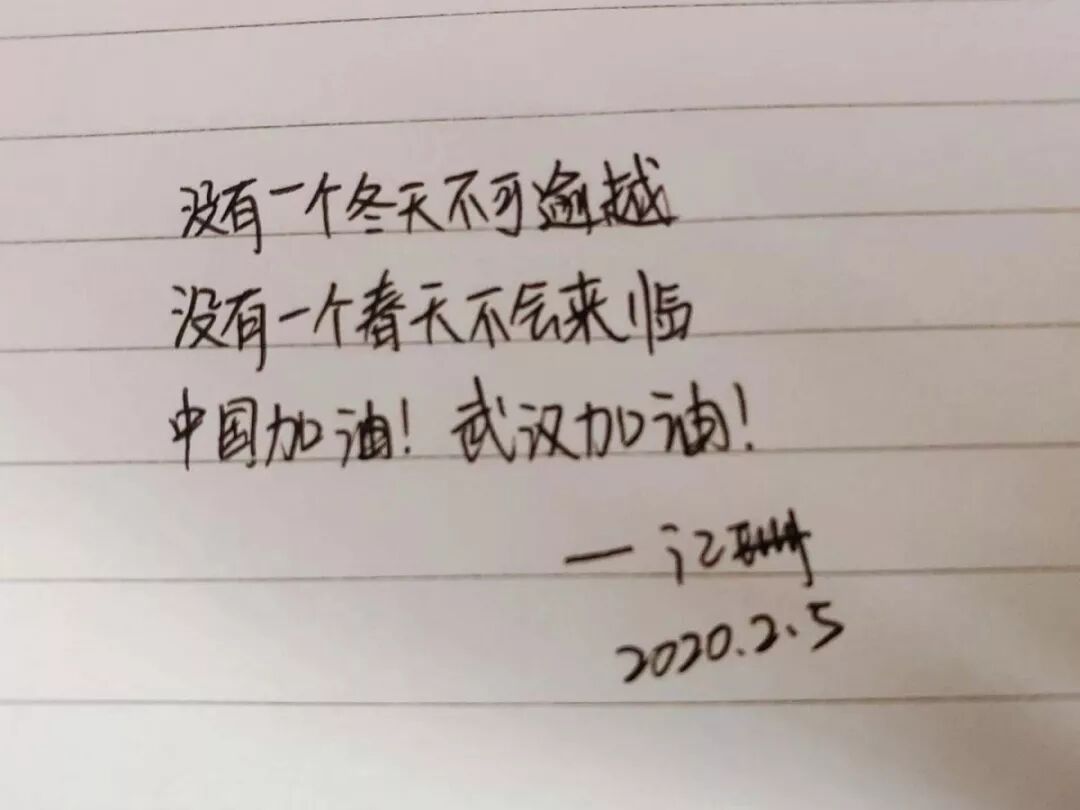 没有一个冬天不可逾越
没有一个春天不会来临
中国加油！武汉加油！
—江珊
2020.2.5